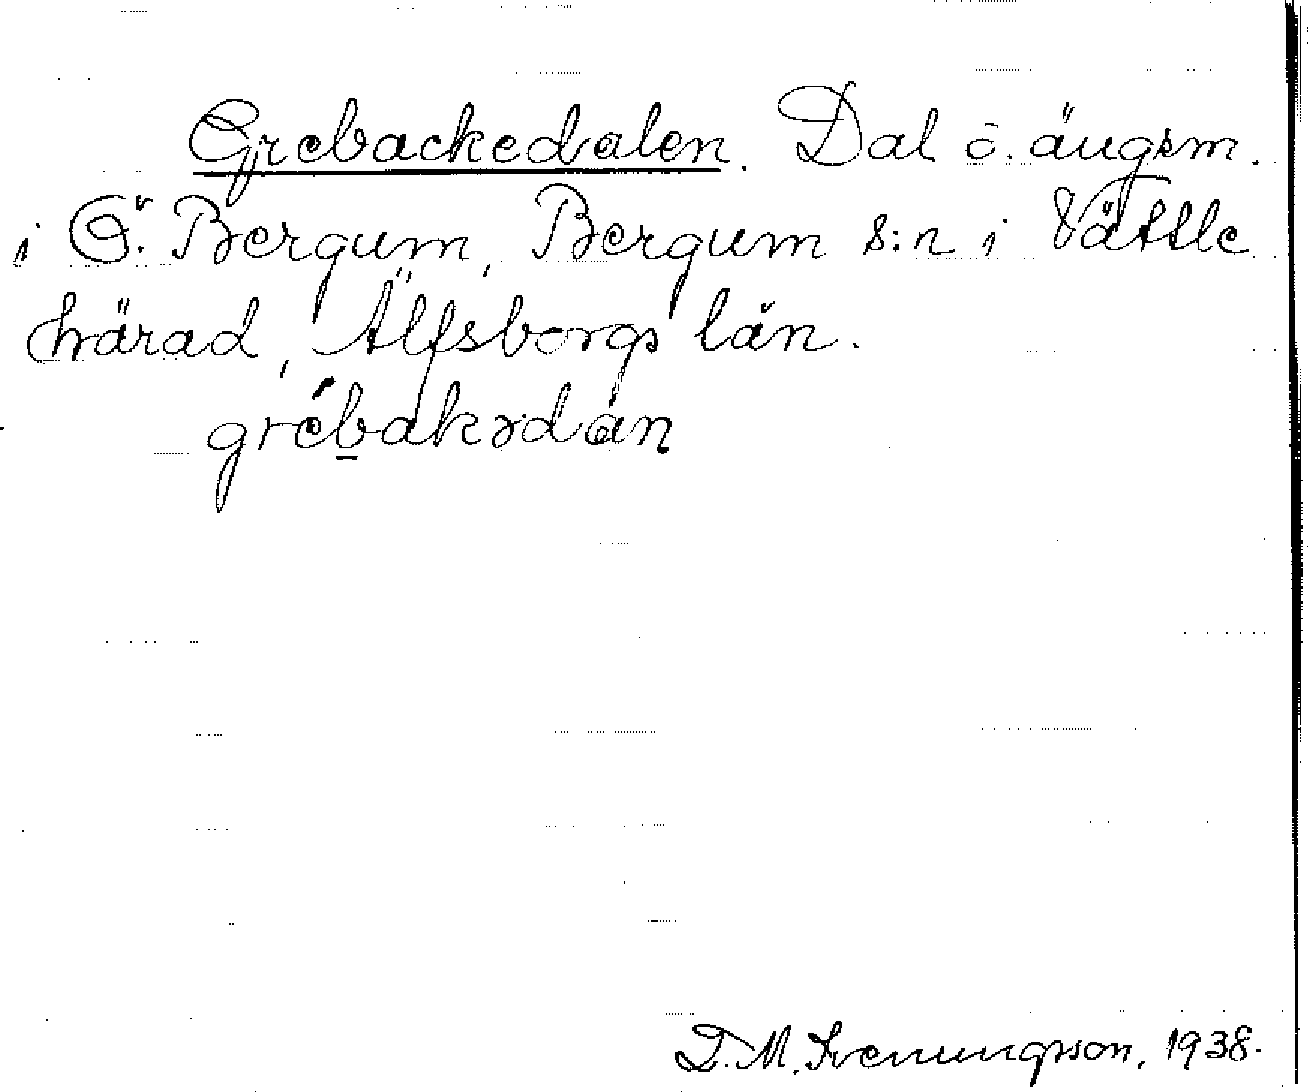 Grebackedalen. Dal o. ängsm.
i Ö. Bergum, Bergum s:n i Vättle
härad, Älfsborgs län.
grébakədan
D. M. Svenungsson, 1938.